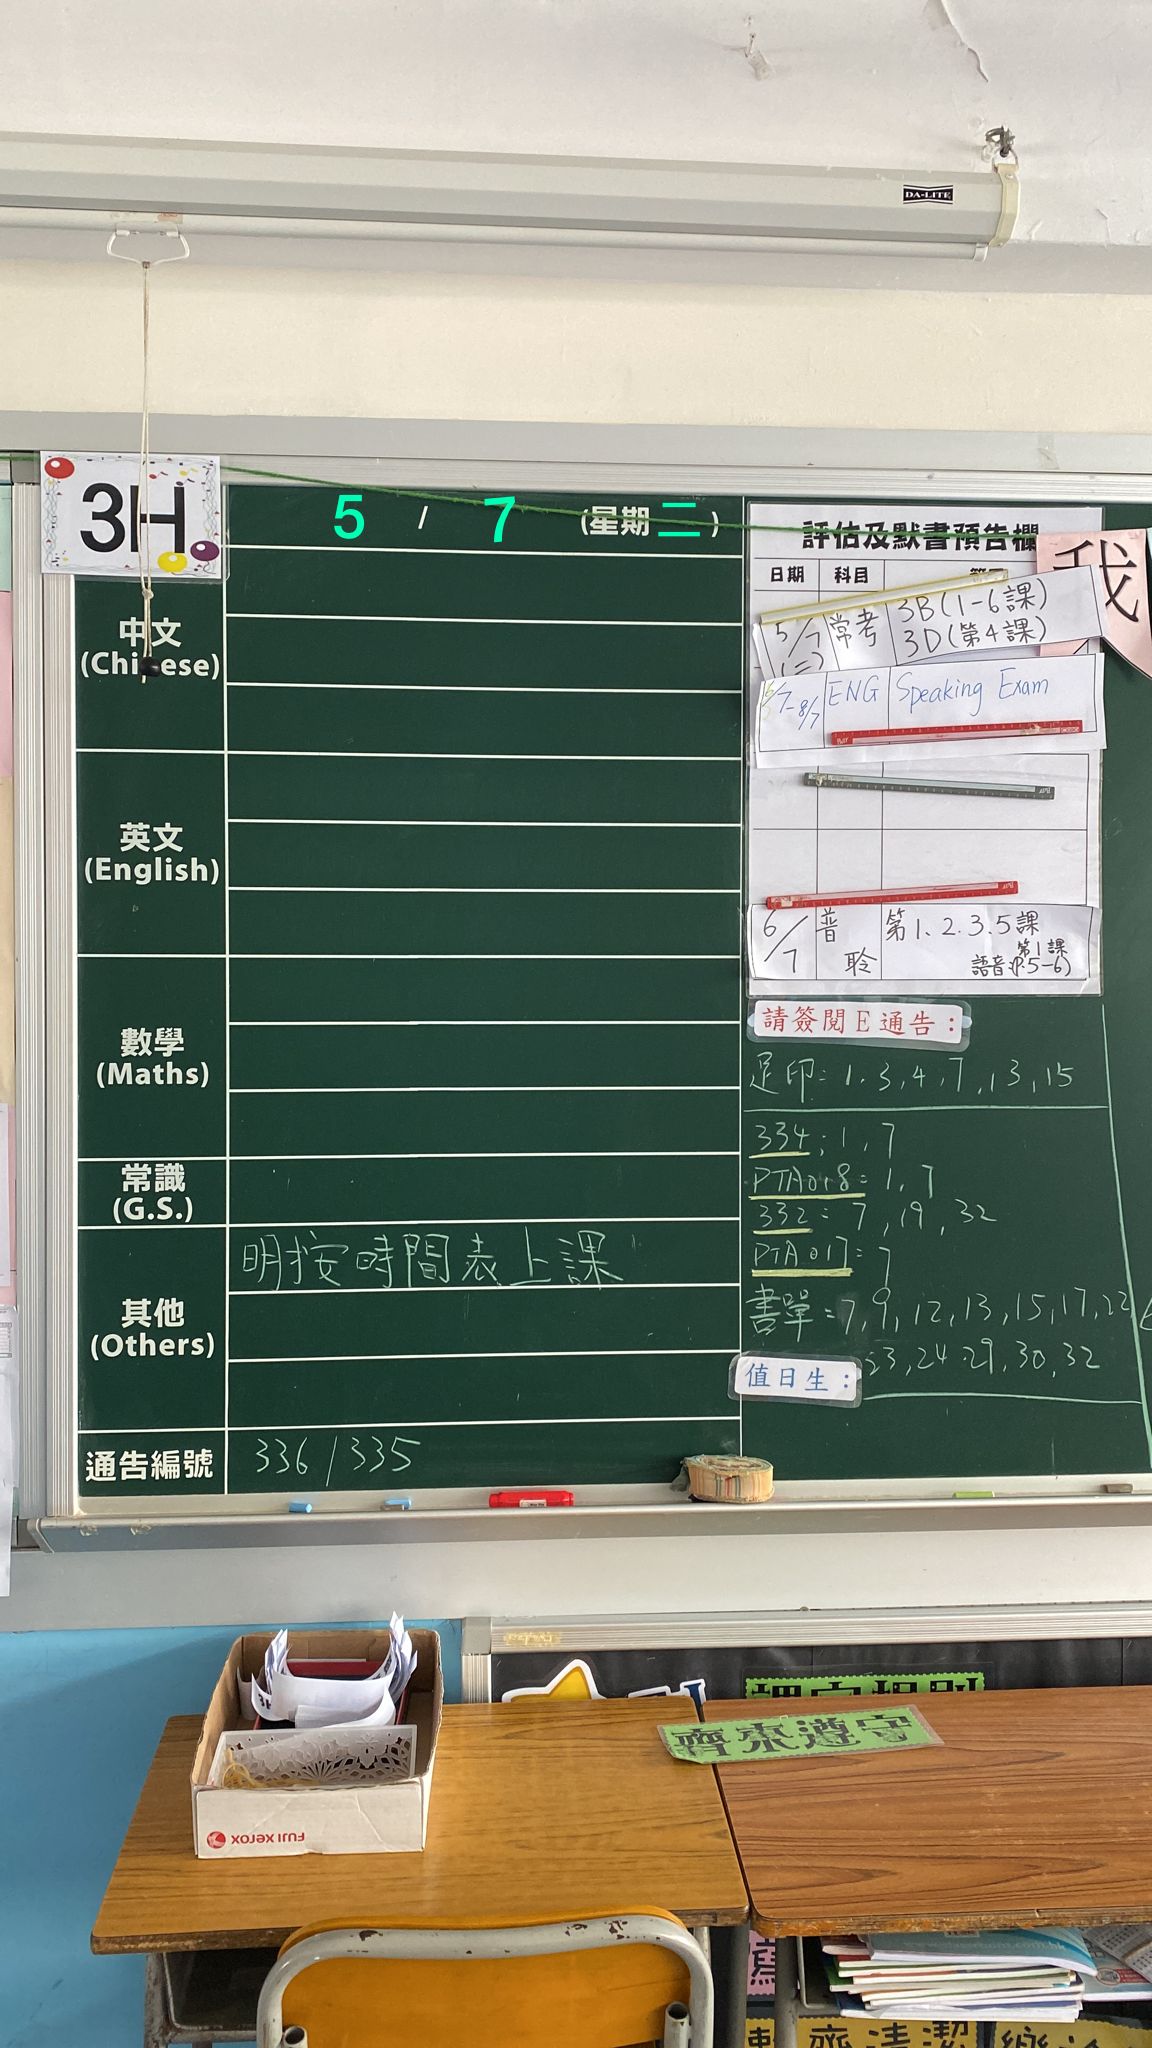 DA-LITE
3H
5 / 7 (星期二)
中文
(Chinese)
英文
(English)
數學
(Maths)
常識
(G.S.)
其他
(Others)
明按時間表上課
通告編號
336/335
評估及默書預告欄
日期 科目
5/7 (二) 常考 3B(1-6課)
3D(第4課)
6/7-8/7 ENG Speaking Exam
6/7 普聆 第1.2.3.5課
第1課
語音(P.5-6)
我
請簽閱E通告:
足印:1,3,4,7,13,15
334:1,7
PTA018:1,7
332:7,19,32
PTA017:7
書單:7,9,12,13,15,17,22
23,24,29,30,32
值日生:
齊來遵守
課室規則
FUJI XEROX
齊清潔